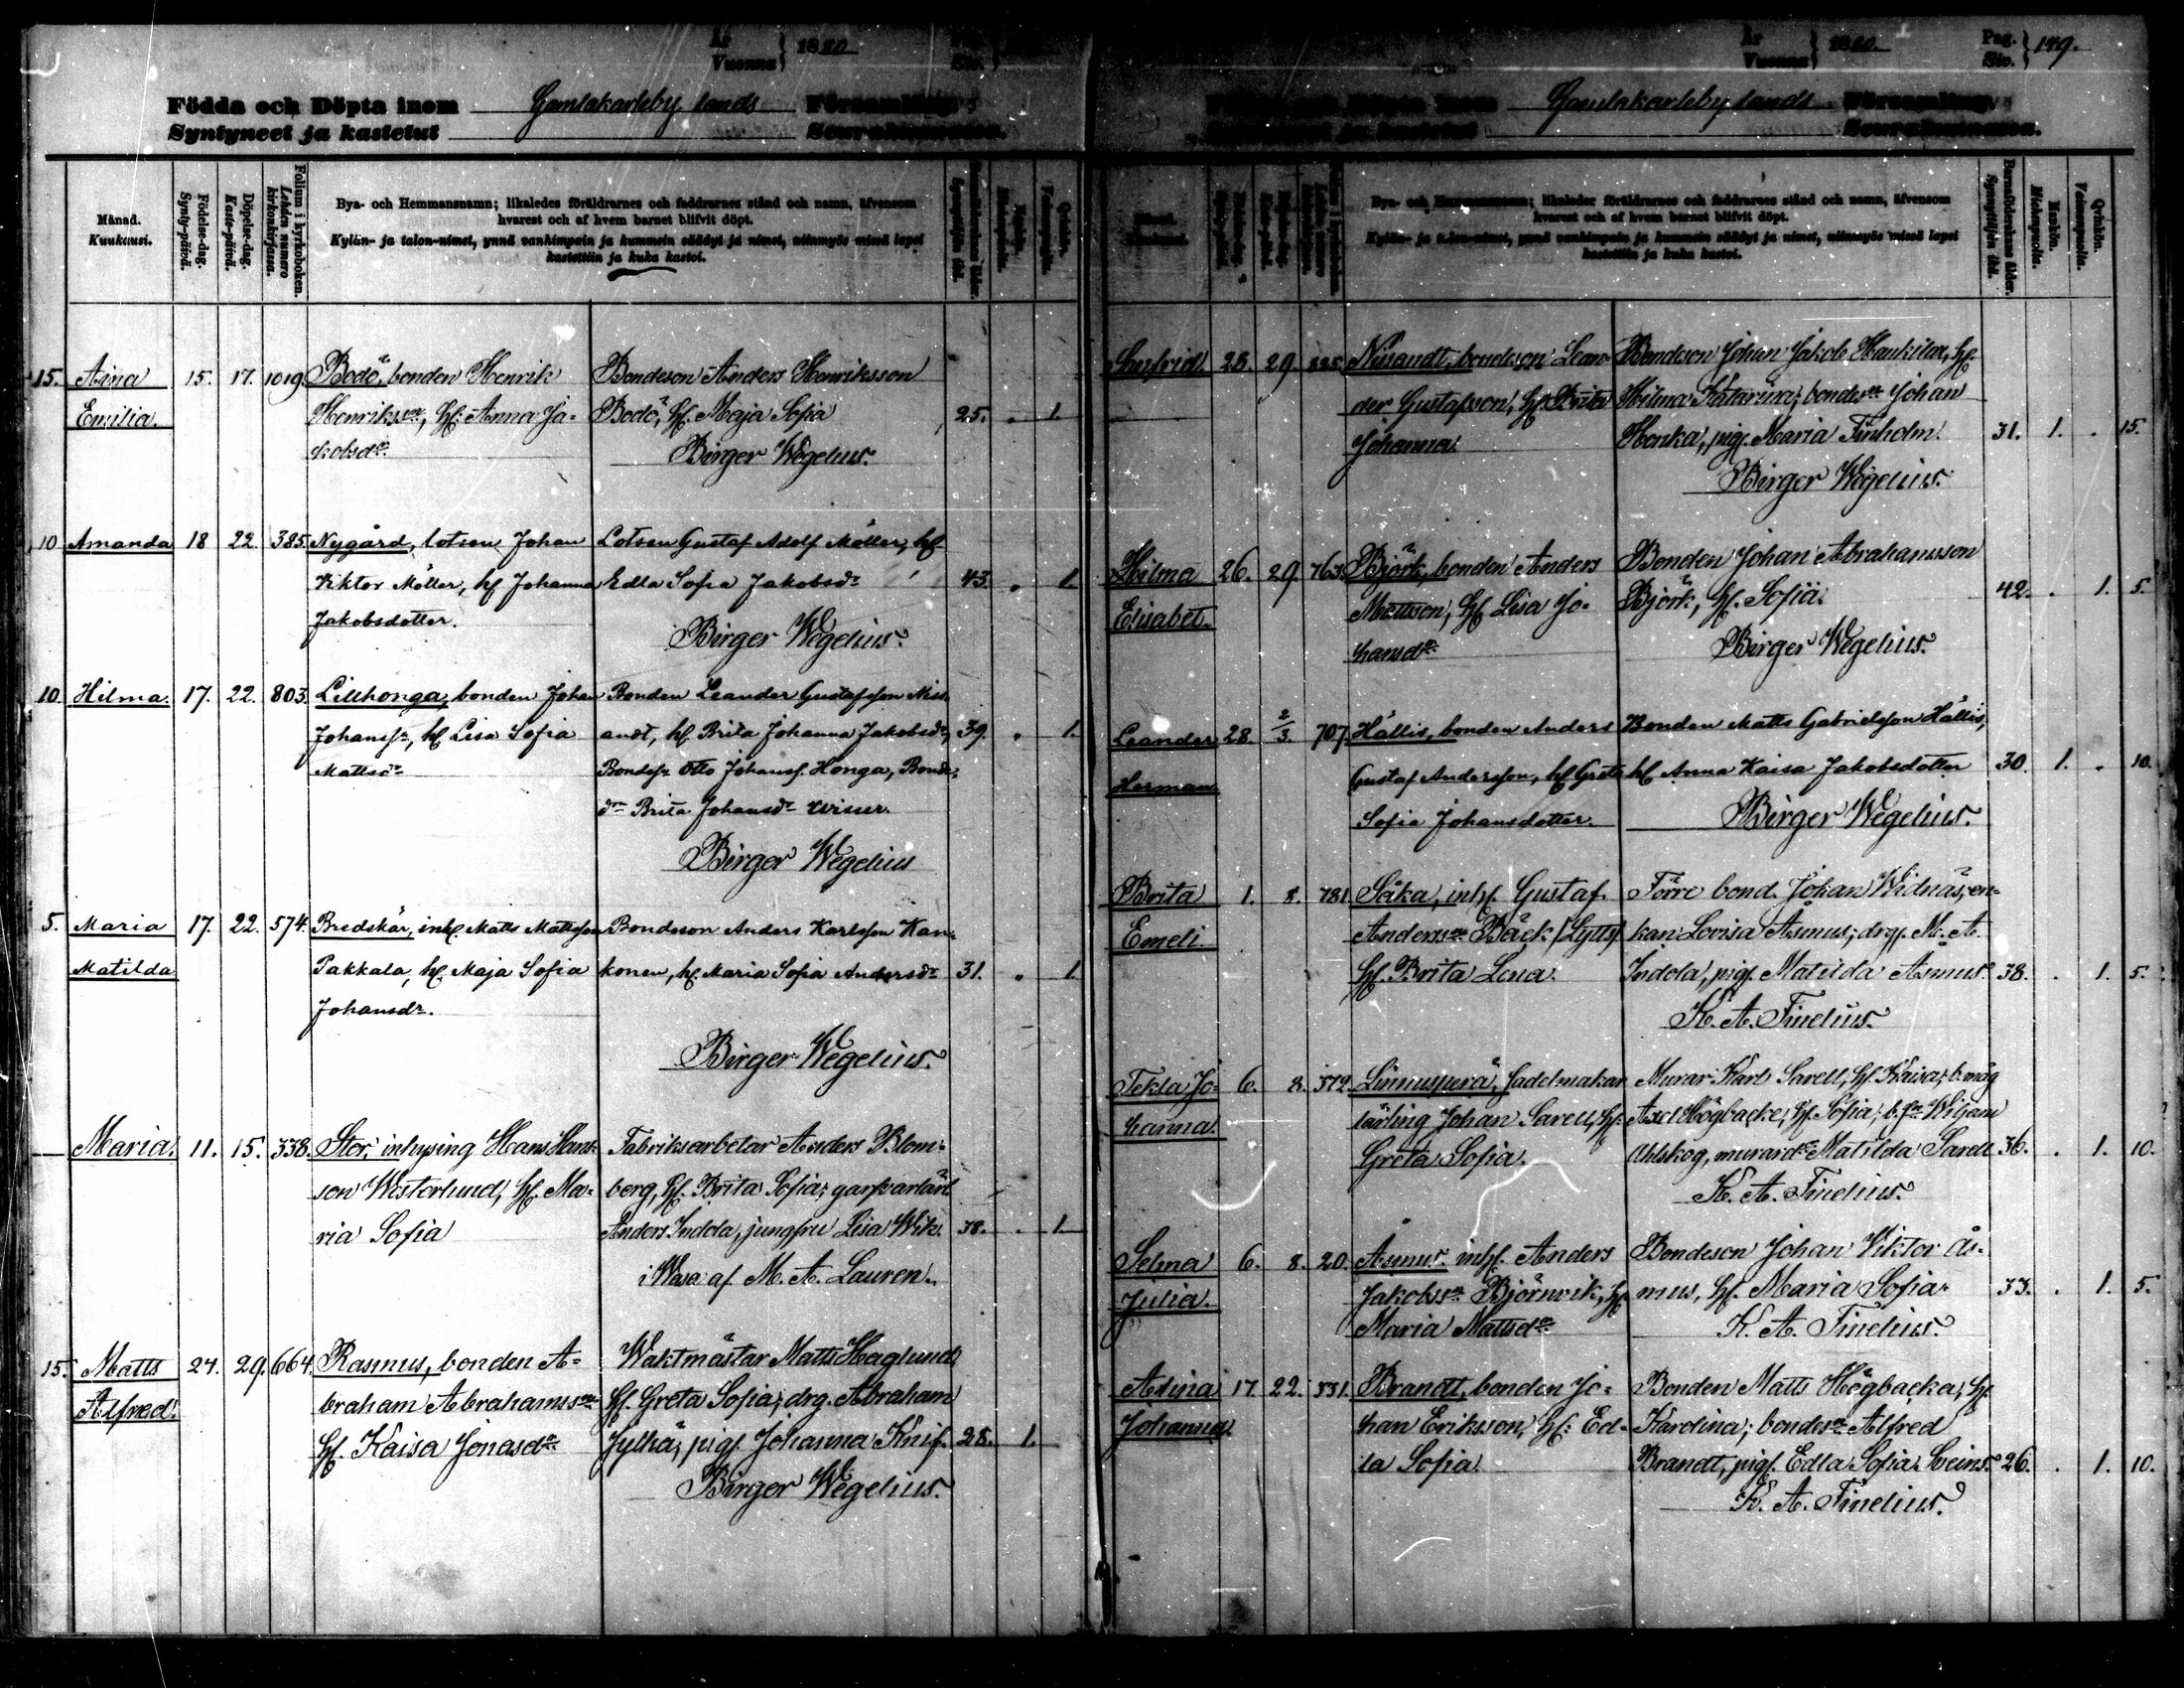 År Vuonna } 1880.
Födda och Döpta inom Gamlakarleby lands Församling.
Syntyneet ja kastetut Seurakunnassa.
Månad. Kuukausi.
Födelse-dag. Synty-päivä.
Döpelse-dag. Kaste-päivä.
Folium i kyrkoboken. Lehden numero kirkonkirjassa.
Bya- och Hemmansnamn; likaledes föräldrarnes och faddrarnes stånd och namn, äfvensom
hvarest och af hvem barnet blifvit döpt.
Kylän- ja talon-nimet, ynnä vanhimpain ja kummein säädyt ja nimet, niinmyös missä lapsi
kastettiin ja kuka kastoi.
15. Aina 15. 17. 1019. Bodö, bonden Henrik Bondeson Anders Henriksson
Emilia. Henrikssn, hf: Anna Ja- Bodö, hf. Maja Sofia 25. " 1.
kobsdr. Birger Wegelius.
10 Amanda 18 22. 385. Nygård, lotsen Johan Lotsen Gustaf Adolf Möller, hf
Viktor Möller, hf Johanna Edla Sofia Jakobsdr 43. " 1.
Jakobsdotter. Birger Wegelius.
10. Hilma. 17. 22. 803. Lillhonga, bonden Johan Bonden Leander Gustafsson Niss-
Johanssn, hf Lisa Sofia andt, hf. Brita Johanna Jakobsdr, 39. " 1.
Mattsdr Bondesn Otto Johanss. Honga, Bonde-
dr Brita Johansdr Wisser.
Birger Wegelius
5. Maria 17. 22. 574. Bredskär, inh. Matts Mattsson Bondeson Anders Karlsson Kan-
Matilda Pakkala, hf. Maja Sofia konen, hf. Maria Sofia Andersdr 31. " 1.
Johansdr.
Birger Wegelius.
Maria. 11. 15. 338. Stor, inhysing Hans Hans- Fabriksarbetar Anders Blom-
son Westerlund, hf. Ma- berg, hf. Brita Sofia; garfvarlärl
ria Sofia Anders Indola, jungfru Lisa Wik. 38. . 1.
i Wasa af M. A. Lauren.
15. Matts 24. 29. 664. Rasmus, bonden A- Waktmästar Matts Haglund,
Alfred. braham Abrahamssn hf. Greta Sofia; drg. Abraham
hf. Kaisa Jonasdr. Jylkä, pig. Johanna Knif. 28. 1.
Birger Wegelius.
År Vuonna } 1880. Pag. Siv. } 149.
Födda och Döpta inom Gamlakarleby lands Församling.
Seurakunnassa.
Bya- och Hemmansnamn; likaledes föräldrarnes och faddrarnes stånd och namn, äfvensom
hvarest och af hvem barnet blifvit döpt.
Kylän- ja talon-nimet, ynnä vanhimpain ja kummein säädyt ja nimet, niinmyös missä lapsi
kastettiin ja kuka kastoi.
Barnaföderskans ålder. Synnyttäjän ikä.
Mankön. Miehenpuolia.
Qvinkön. Vaimonpuolia.
28. 29. 825. Nissandt, bondeson Lean- Bondeson Johan Jakob Haukilax, hf
der Gustafsson, hf. Brita Hilma Katarina; bondesn Johan
Johanna. Honka, pig. Maria Finholm. 31. 1. . 15.
Birger Wegelius.
Hilma 26. 29. 763. Björk, bonden Anders Bonden Johan Abrahamsson
Elisabet. Mattsson, hf Lisa Jo- Björk, hf. Sofia. 42. . 1. 5.
hansdr. Birger Wegelius.
Leander 28. 2/3. 707. Hällis, bonden Anders Bonden Matts Gabrielsson Hällis,
Herman Gustaf Andersson, hf Greta hf. Anna Kaisa Jakobsdotter 30. 1. . 10.
Sofia Johansdotter. Birger Wegelius.
Brita 1. 8. 781. Såka, inh. Gustaf Förre bond. Johan Widnäs, en-
Emeli. Anderssn Bäck /Lytts/ kan Lovisa Åsmus; drg. M. A.
hf. Brita Lena. Indola, pig. Matilda Åsmus. 38. . 1. 5.
K. A. Finelius.
Tekla Jo- 6. 8. 512. Linnusperä, sadelmakar Murar. Karl Sarell, hf. Kaisa; b. måg
hanna. lärling Johan Sarell, hf. Axel Högbacke, hf. Sofia; b.sn Wiljam
Greta Sofia. Ahlskog, murardr Matilda Sarell 36. . 1. 10.
K. A. Finelius.
Selma 6. 8. 20. Åsmus. inh. Anders Bondeson Johan Viktor Ås-
Julia. Jakobssn Björnvik, hf mus, hf. Maria Sofia. 33. . 1. 5.
Maria Mattsdr. K. A. Finelius.
Adina 17. 22. 551. Brandt, bonden Jo- Bonden Matts Högbacka, hf
Johanna. han Eriksson, hf: Ed- Karolina; bondesn Alfred
la Sofia. Brandt, pig. Edla Sofia Sveins. 26. . 1. 10.
K. A. Finelius.